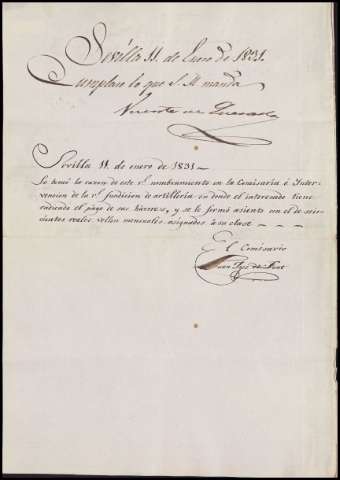 Sevilla 11. de Enero de 1831.
Cumplase lo que S. M. manda
Vicente de Quesada
Sevilla 11. de enero de 1831 —
Se tomó la razon de este rl. nombramiento en la Comisaría é Inter-
vencion de la rl. fundicion de artillería en donde el interesado tiene
radicado el pago de sus haveres, y se le formó asiento con el de seis-
cientos reales vellon mensuales asignados á su clase — — —
El Comisario
Juan